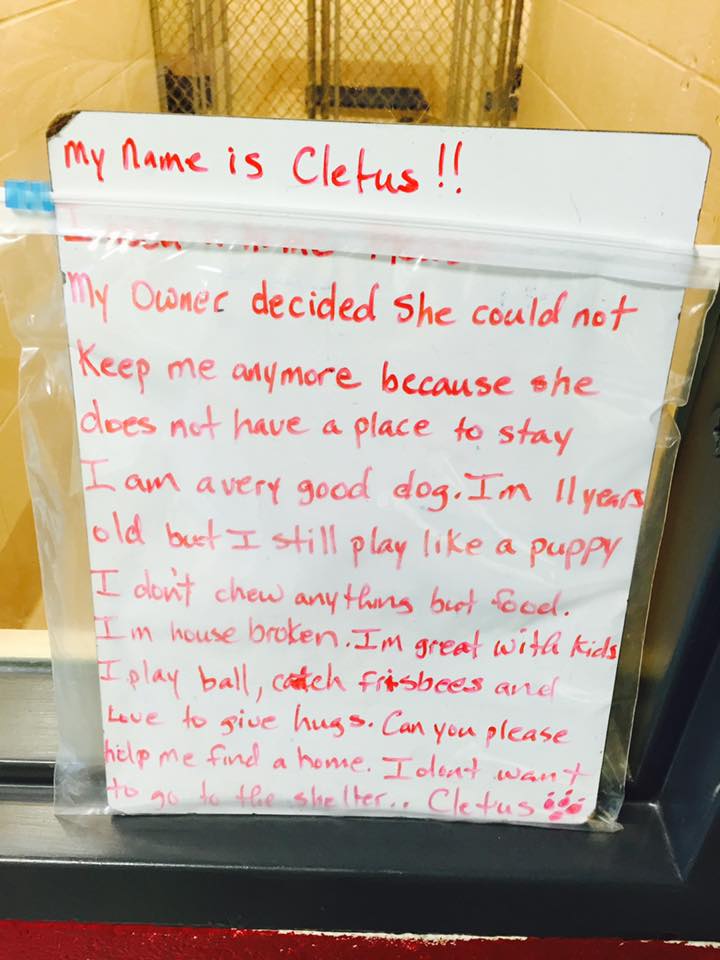 My Name is Cletus!!
I need a
My Owner decided She could not
Keep me anymore because she
does not have a place to stay
I am a very good dog. Im 11 years
old but I still play like a puppy
I don't chew anything but food.
Im house broken. Im great with kids
I play ball, catch frisbees and
Love to give hugs. Can you please
help me find a home. I dont want
to go to the shelter.. Cletus